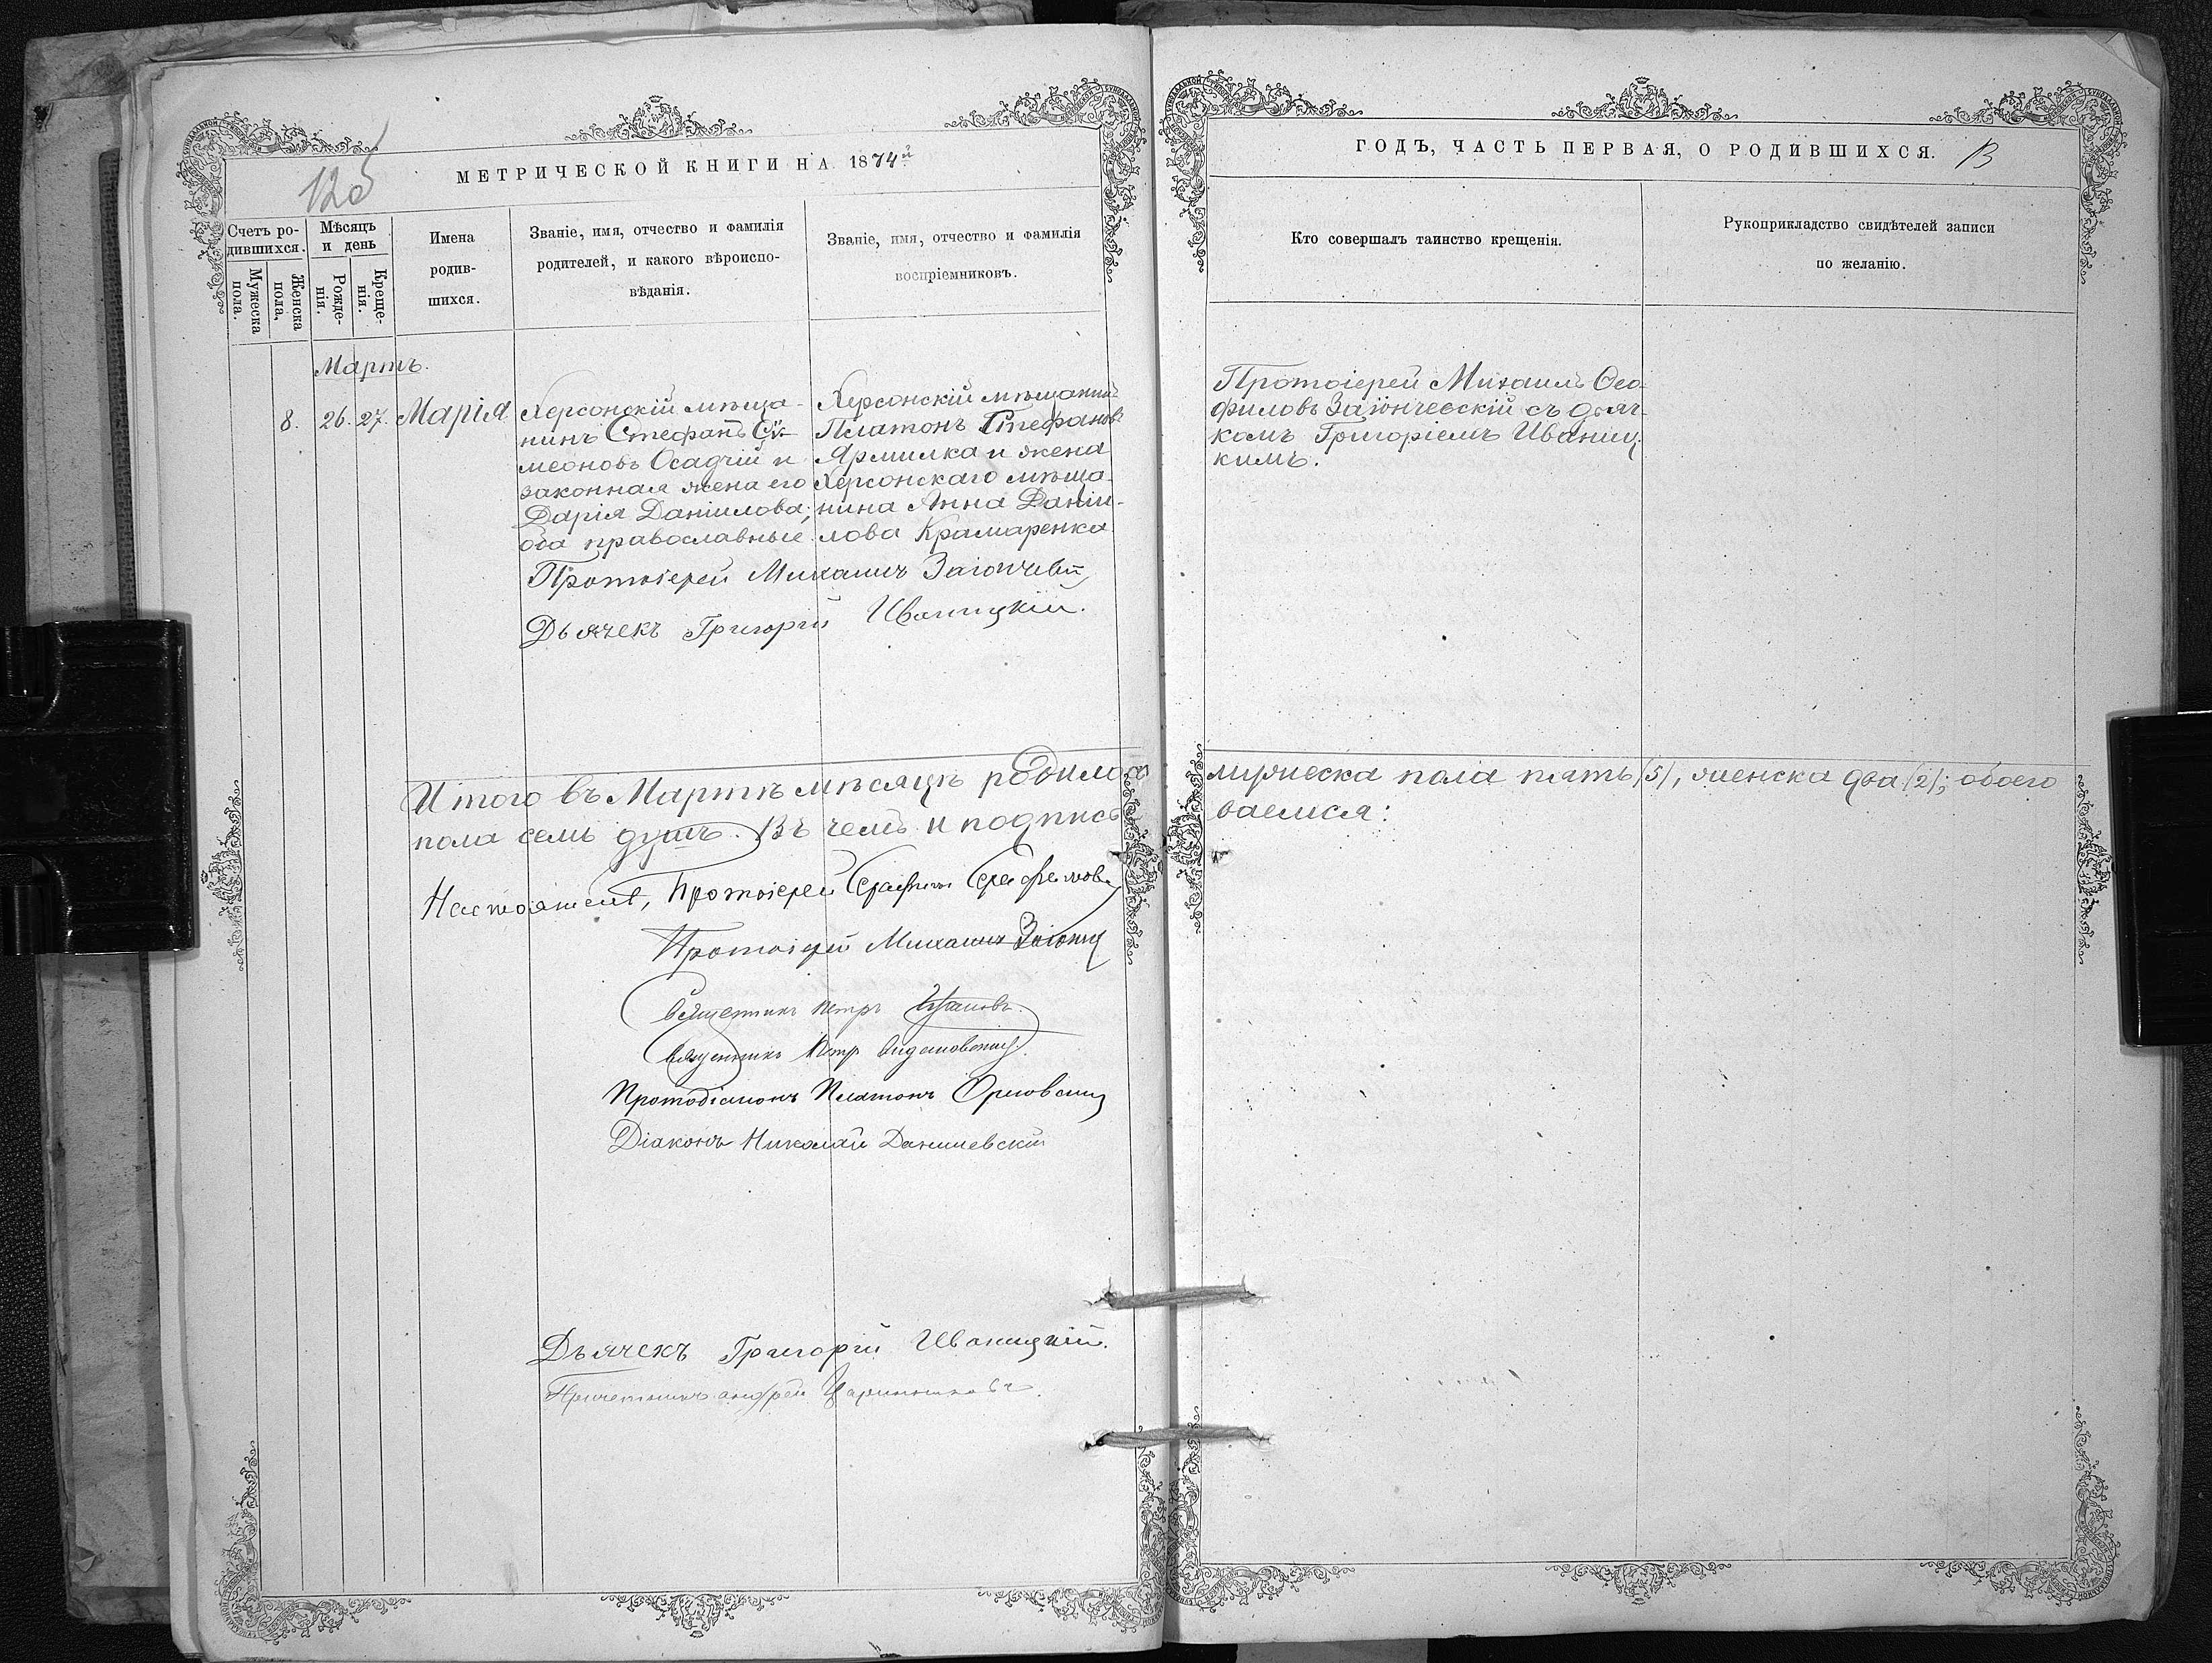 125
МЕТРИЧЕСКОЙ КНИГИ НА 1874й
ГОДЪ, ЧАСТЬ ПЕРВАЯ, О РОДИВШИХСЯ.
Счетъ ро-
дившихся.
Мужеска
пола.
Женска
пола.
Мѣсяцъ
и день
Рожде-
нія.
Креще-
нія.
Имена
родив-
шихся.
Званіе, имя, отчество и фамилія
родителей, и какого вѣроиспо-
вѣданія.
Званіе, имя, отчество и фамилія
воспріемниковъ.
Кто совершалъ таинство крещенія.
Рукоприкладство свидѣтелей записи
по желанію.
Мартъ.
8. 26. 27. Марія
Херсонскій мѣща-
нинъ Стефанъ Сѵ-
меоновъ Осадчій и
законная жена его
Дарія Даніилова;
оба православные.
Херсонскій мѣщанинъ
Платонъ Стефановъ
Ярмилка и жена
Херсонскаго мѣща-
нина Анна Даніи-
лова Крамаренка
Протоіерей Михаилъ Ѳео-
филовъ Заіончевскій съ дьяч-
комъ Григоріемъ Иваниц-
кимъ.
Протоіерей Михаилъ
Дьячекъ Григорій Иваницкій.
Итого въ Мартѣ мѣсяцѣ родилось мужеска пола пять (5), женска два (2); обоего
пола семь душъ. Въ чемъ и подписы
ваемся:
Настоятель, Протоіерей
Протоіерей Михаилъ
Священникъ Петръ
Священникъ Петръ
Протодіаконъ Платонъ Орловскій
Діаконъ Николай Данилевскій
Дьячекъ Григорій Иваницкій.
Причетникъ Андрей